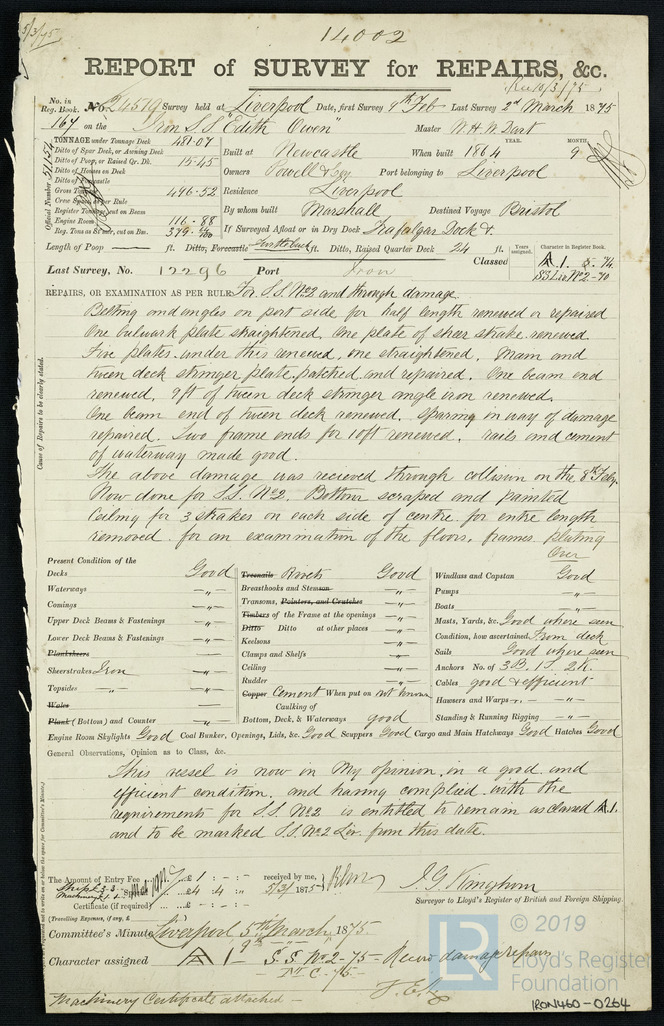 5/3/75
14002
REPORT of SURVEY for REPAIRS, &c.
Rec 10/3/75.
No. in Reg. Book. No. Survey held at Liverpool Date, first Survey 9th Feb Last Survey 2nd March 1875
164 on the Iron S.S "Edith Owen" Master W.H.W. Dart
TONNAGE under Tonnage Deck 481.07
Ditto of Spar Deck, or Awning Deck
Ditto of Poop, or Raised Qr. Dk. 15.45
Ditto of Houses on Deck
Ditto of Forecastle
Gross Tonnage 496.52
Crew Space, after Rule
Register Tonnage, cut on Beam
Engine Room 116.88
Reg. Tons as St'mr, cut on Bm.
Official Number 51154
Built at Newcastle When built 1864 YEAR. MONTH 9
Owners Powell & Port belonging to Liverpool
Residence Liverpool
By whom built Marshall Destined Voyage Bristol
If Surveyed Afloat or in Dry Dock Trafalgar Dock &
Length of Poop — ft. Ditto, Forecastle ft. Ditto, Raised Quarter Deck 24 ft.
Years assigned. Character in Register Book.
Classed A.1. 5.74
SS Liv No2-70
Last Survey, No. 12296 Port Iron
REPAIRS, OR EXAMINATION AS PER RULE For S.S. No2 and through damage.
Cause of Repairs to be clearly stated.
Belting and angles on port side for half length renewed or repaired
One bulwark plate straightened. One plate of sheer strake renewed.
Five plates under this renewed, one straightened. Main and
tween deck stringer plate patched and repaired. One beam end
renewed, 9ft of tween deck stronger angle iron renewed.
One beam end of tween deck renewed. Sparring in way of damage
repaired. Two frame ends for 10ft renewed. rails and cement
of waterway made good.
The above damage was recieved through collision on the 8th Feby.
Now done for S.S. No2. Bottom scraped and painted
Ceiling for 3 strakes on each side of centre for entire length
removed for an examination of the floors, frames plating
Over
Present Condition of the
Decks Good
Waterways —"—
Comings —"—
Upper Deck Beams & Fastenings —"—
Lower Deck Beams & Fastenings —"—
Planksheers
Sheerstrakes Iron —"—
Topsides —"— —"—
Wales
Plank (Bottom) and Counter —"—
Treenails Rivets Good
Breasthooks and Stemson —"—
Transoms, Pointers, and Crutches —"—
Timbers of the Frame at the openings —"—
Ditto Ditto at other places —"—
Keelsons —"—
Clamps and Shelfs —"—
Ceiling —"—
Rudder —"—
Copper Cement When put on not known
Caulking of
Bottom, Deck, & Waterways good
Windlass and Capstan Good
Pumps —"—
Boats —"—
Masts, Yards, &c. Good where seen
Condition, how ascertained From deck
Sails Good where seen
Anchors No. of 3B. 1S. 2K.
Cables good & efficient
Hawsers and Warps —"— —"—
Standing & Running Rigging —"—
Engine Room Skylights Good Coal Bunker, Openings, Lids, &c. Good Scuppers Good Cargo and Main Hatchways Good Hatches Good
General Observations, Opinion as to Class, &c.
This vessel is now in My opinion in a good and
efficient condition, and having complied with the
requirements for S.S. No2 is entitled to remain as classed A.1.
and to be marked S.S. No2 Liv. from this date.
The Amount of Entry Fee £1 : - : - received by me,
£4 : 4 : " 5/3/1875
Certificate (if required)
(Travelling Expenses, if any, £ )
Surveyor to Lloyd's Register of British and Foreign Shipping.
Committee's Minute Liverpool 5th March 1875.
9th —"—
Character assigned A 1 — S.S. No.2-75 - Recent damage repairs
M C. 75.
Machinery Certificate attached —
LR
© 2019
Lloyd's Register
Foundation
IRON460-0264